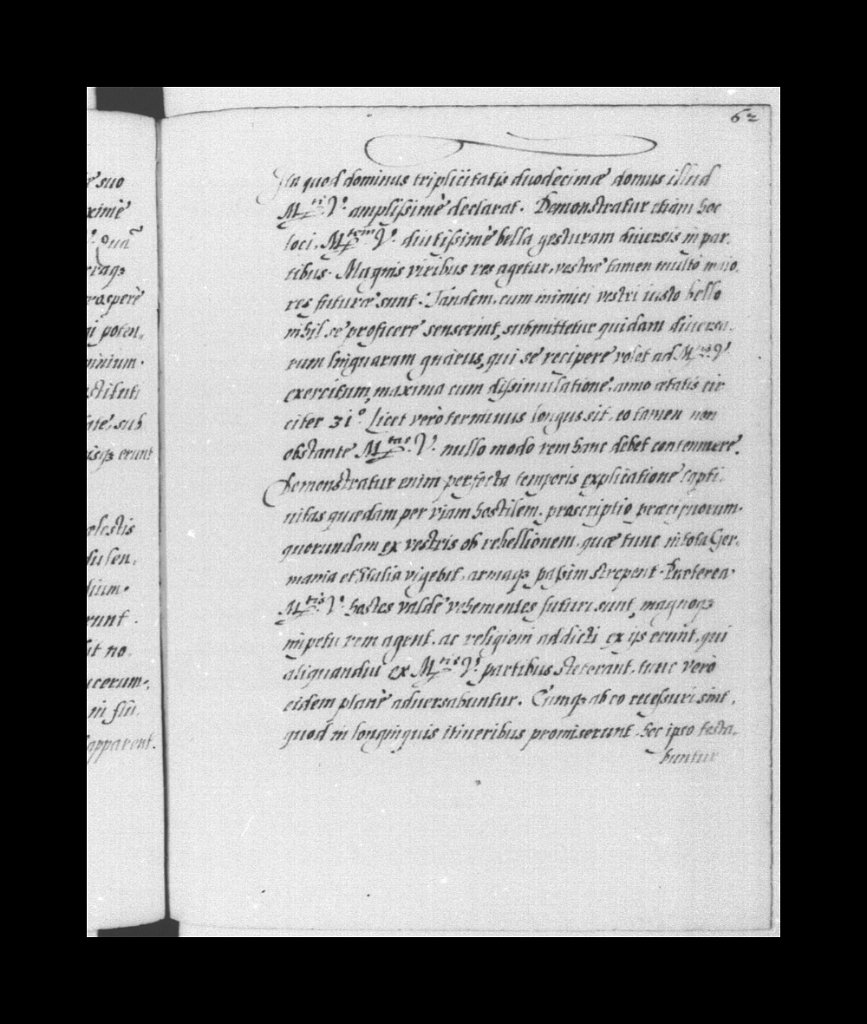 62
e suo
ximè
Quâ
eraq3
rosperè
qi poten,
minium.
stituti
ate. sub
isq3 erunt
ælestis
dium.
runt.
it no.
ucerum,
in fiu
apparent.
In quod dominus triplicitatis duodecimæ domus illud
M.ti V. amplissimè declarat. Demonstratur etiam hoc
loci, M.tem V. diutissimè bella gesturam diversis in par,
tibus. Magnis viribus res agetur, vestræ tamen multò maio,
res futuræ sunt. Tandem, cum inimici vestri iusto bello
nihil se proficere senserint, submittetur quidam diversa,
rum linguarum gnarus, qui se recipere volet ad M.tis V.
exercitum, maxima cum dissimulatione, anno ætatis cir
citer 31º. Licet verò terminus longus sit, eo tamen non
obstante M.tas V. nullo modo rem hanc debet contemnere.
Demonstratur enim perfecta temporis explicatione capti,
uitas quædam per viam hostilem, proscriptio præcipuorum
quorundam ex vestris ob rebellionem, quæ tunc in tota Ger,
mania et Italia vigebit, armaq3 passim strepent. Præterea
M.tis V. hostes valdè vehementes futuri sunt, magnoq3
impetu rem agent, ac religioni addicti ex ijs erunt, qui
aliquandiu ex M.tis V. partibus steterant, tunc verò
eidem planè adversabuntur. Cumq3 ab eo recessuri sint,
quod in longinquis itineribus promiserunt, hoc ipso testa,
buntur